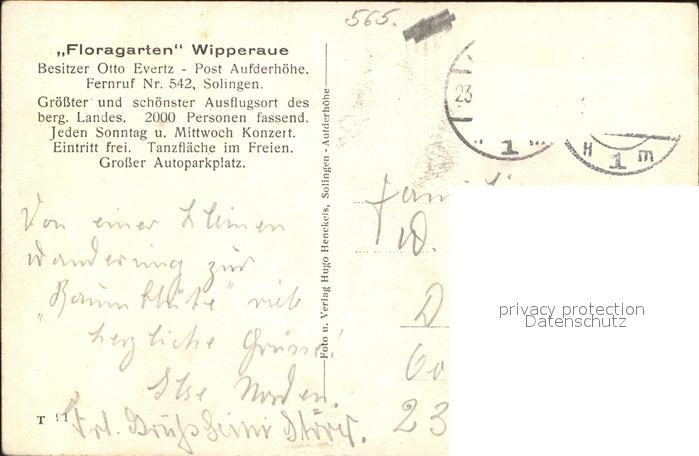 „Floragarten“ Wipperaue
Besitzer Otto Evertz - Post Aufderhöhe.
Fernruf Nr. 542, Solingen.
Größter und schönster Ausflugsort des
berg. Landes. 2000 Personen fassend.
Jeden Sonntag u. Mittwoch Konzert.
Eintritt frei. Tanzfläche im Freien.
Großer Autoparkplatz.
Von einer kleinen
Wanderung zur
"Baumblüte" viele
herzliche Grüsse!
Ilse Norden.
Frl.
T 11
Foto u. Verlag Hugo Henckels, Solingen-Aufderhöhe
565.
23
1
H 1 m
W.
D
23
privacy protection
Datenschutz